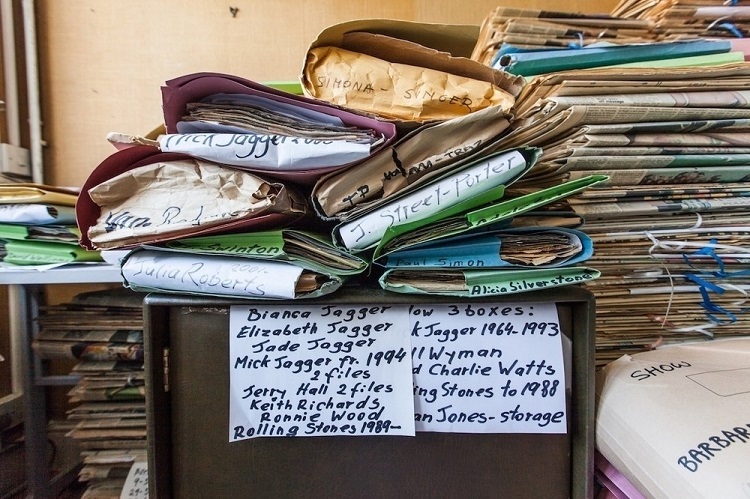 SIMONA - SINGER
Mick Jagger 2000
J. Street-Porter
Swinton
Julia Roberts
2001-
Paul Simon
Alicia Silverstone
Bianca Jagger
Elizabeth Jagger
Jade Jagger
Mick Jagger fr. 1994
2 files
Jerry Hall 2 files
Keith Richards
Ronnie Wood
Rolling Stones 1989-
low 3 boxes:
k Jagger 1964-1993
ll Wyman
d Charlie Watts
ing Stones to 1988
an Jones-storage
SHOW
BARBAR